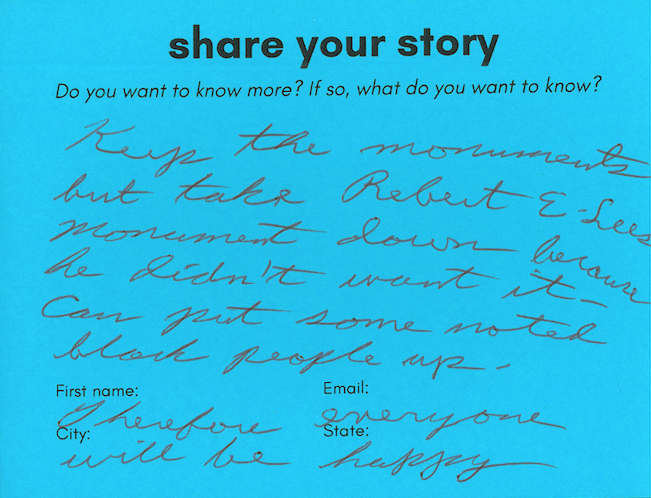 share your story
Do you want to know more? If so, what do you want to know?
Keep the monuments
but take Robert E. Lees
monument down because
he didn't want it -
Can put some noted
black people up -
First name: Email:
Therefore everyone
City: State:
will be happy